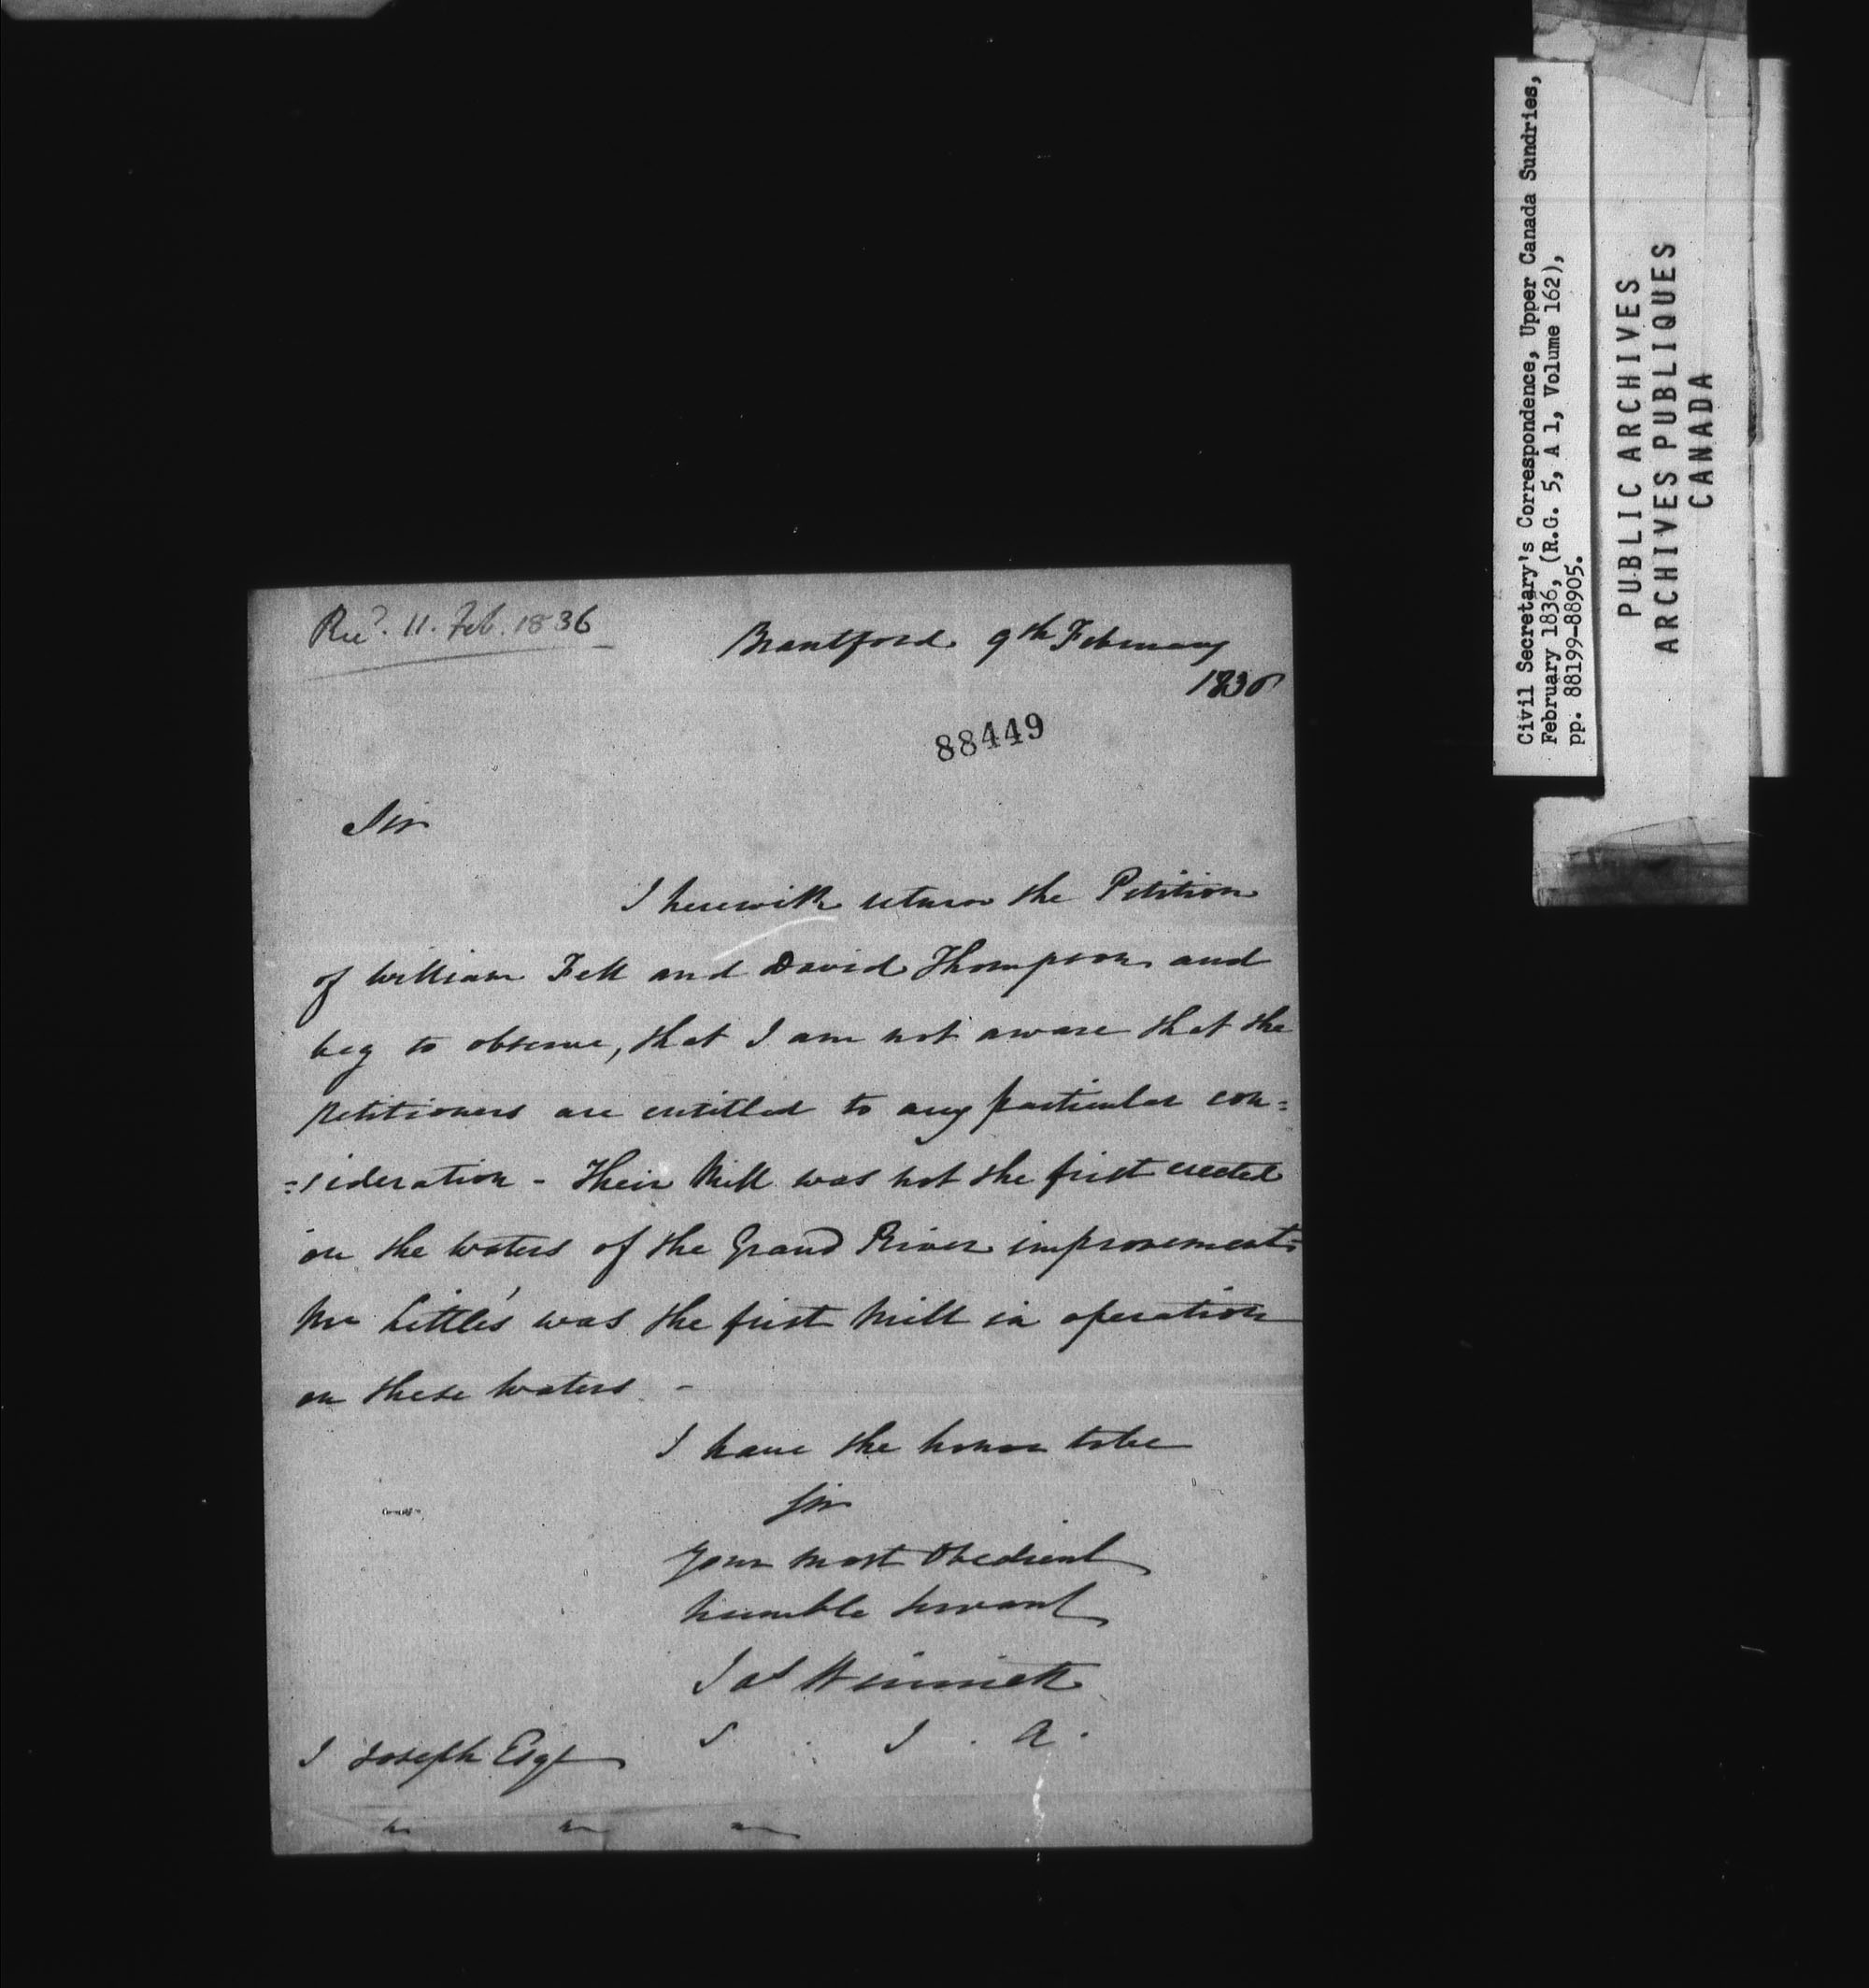 Recd. 11. Feb. 1836
Brantford 9th February
1836
88449
Sir
I herewith return the Petition
of William Fell and David Thompson and
beg to observe, that I am not aware that the
petitioners are entitled to any particular con=
=sideration - Their Mill was not the first erected
on the waters of the Grand River improvements
Mr Little's was the first Mill in operation
on these waters. -
I have the honor to be
Sir
Your most Obedient
humble servant
Jas Winniett
S . I . A .
J Joseph Esqr
Civil Secretary's Correspondence, Upper Canada Sundries,
February 1836, (R.G. 5, A 1, Volume 162),
pp. 88199-88905.
PUBLIC ARCHIVES
ARCHIVES PUBLIQUES
CANADA